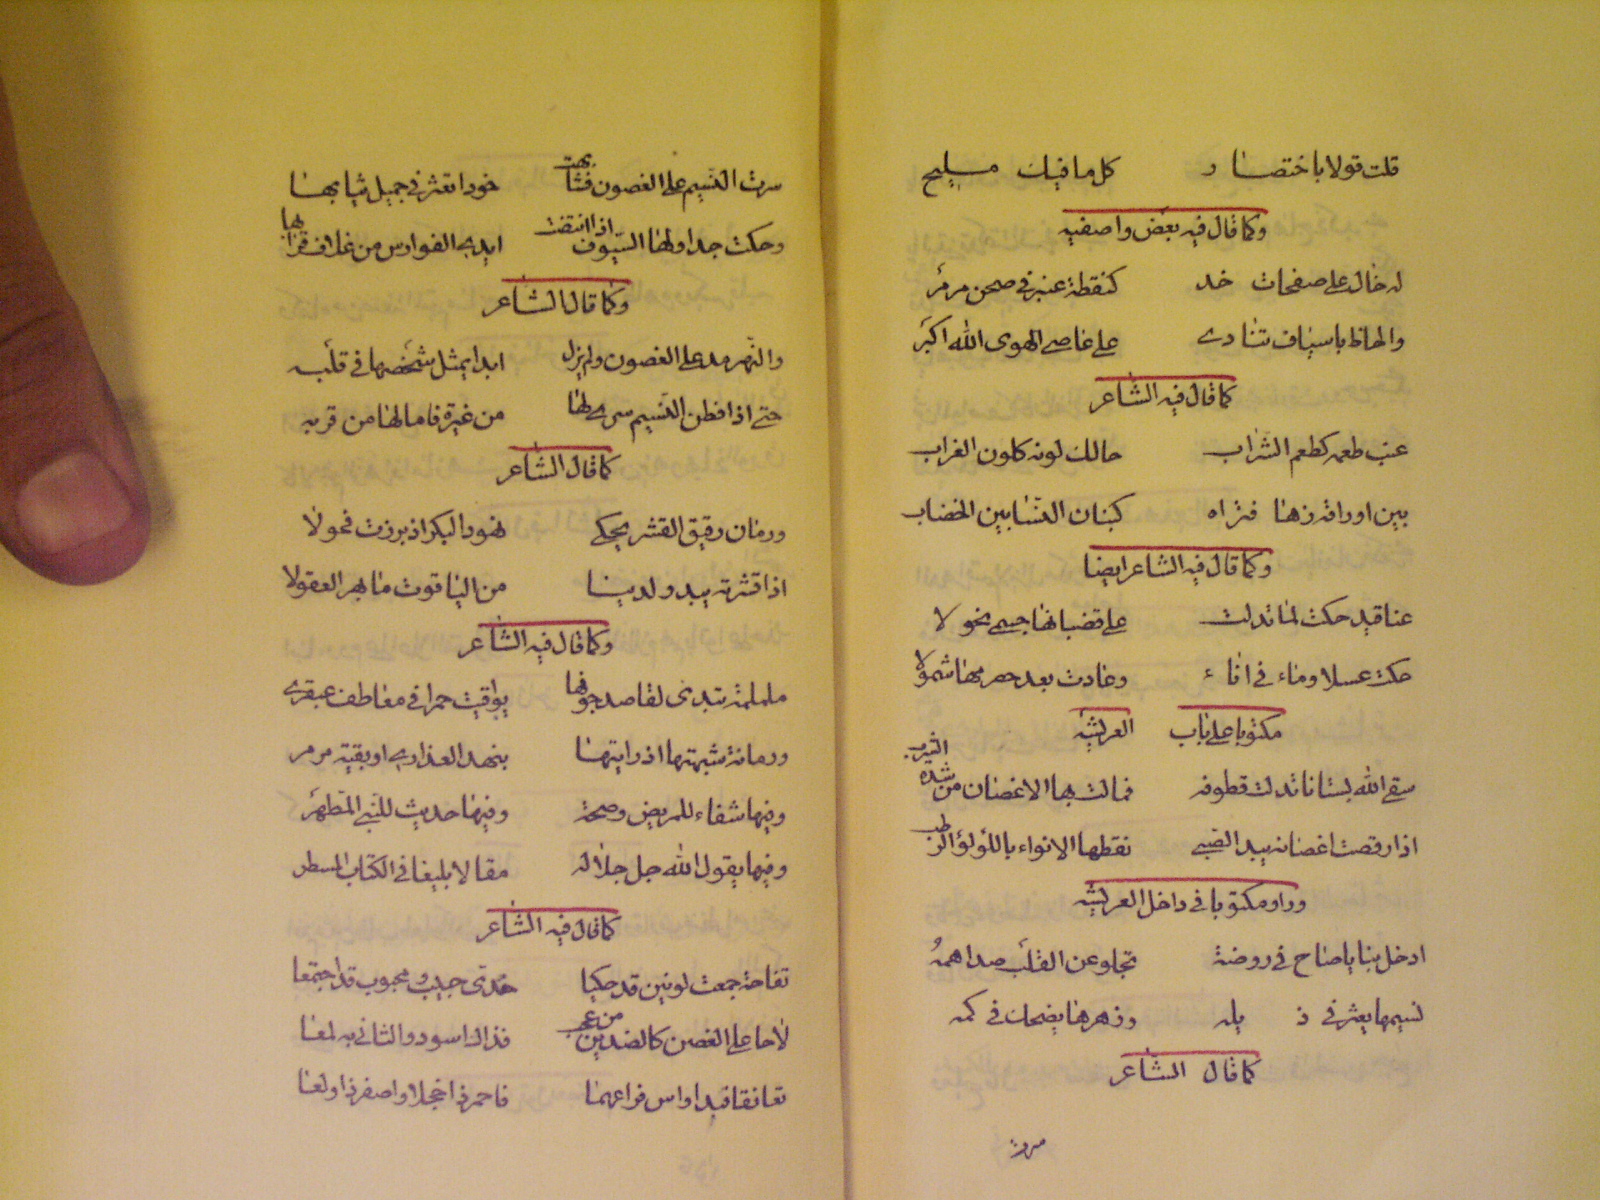 قلت قولا باختصار كل ما فيك مليح
وكما قال فيه بعض واصفيه
له خال على صفحات خد كنقطة عنبر في صحن مرمر
والحاظ باسياف تنادى على عاصي الهوى الله اكبر
كما قال فيه الشاعر
عنب طعمه كطعم الشراب حالك لونه كلون الغراب
بين اوراقه زها فتراه كبنان النسا بين الخضاب
وكما قال فيه الشاعر ايضا
عناقيد حكت لما تدلت على قضبانها جسمى نحولا
حكت عسلا وماء في اناء وعادت بعد حصرمها شمولا
مكتوبا على باب العريشه
سقى الله بستانا تدلت قطوفه فمالت بها الاغصان من شدة الشرب
اذا رقصت اغصانه بيد الصبى نقطها الانواء باللؤلؤ الرطب
وراو مكتوبا في داخل العريشه
ادخل بنا يا صاح في روضة تجلو عن القلب صدا همه
نسيمها يعثر في ذيله وزهرها يضحك في كمه
كما قال الشاعر
سرت
سرت النسيم على الغصون فتشابهت خودا تعثر في جميل ثيابها
وحكت جداولها السيوف اذا انتقت ايدى الفوارس من غلاف قرابها
وكما قال الشاعر
والنهر مد على الغصون ولم يزل ابدا يمثل شخصها في قلبه
حتى اذا فطن النسيم سرى لها من غيرة فامالها من قربه
كما قال الشاعر
ورمان رقيق القشر يحكى نهود البكر اذ برزت فحولا
اذا قشرته يبدو لدينا من الياقوت ما بهر العقولا
وكما قال فيه الشاعر
ململمة تبدى لقاصد جوفها يواقيت حمرا في معاطف عبقرى
ورمانة شبهتها اذ رايتها بنهد العذارى او بقبة مرمر
وفيها شفاء للمريض وصحة وفيها حديث للنبى المطهر
وفيها يقول الله جل جلاله مقالا بليغا في الكتاب المسطر
كما قال فيه الشاعر
تفاحة جمعت لونين قد حكيا خدى حبيب ومحبوب قد اجتمعا
لاحا على الغصن كالضدين من عجب فذاك اسود والثاني به لمعا
تعانقا فبدا واس فراعهما فاحمر ذا خجلا واصفر ذا ولعا